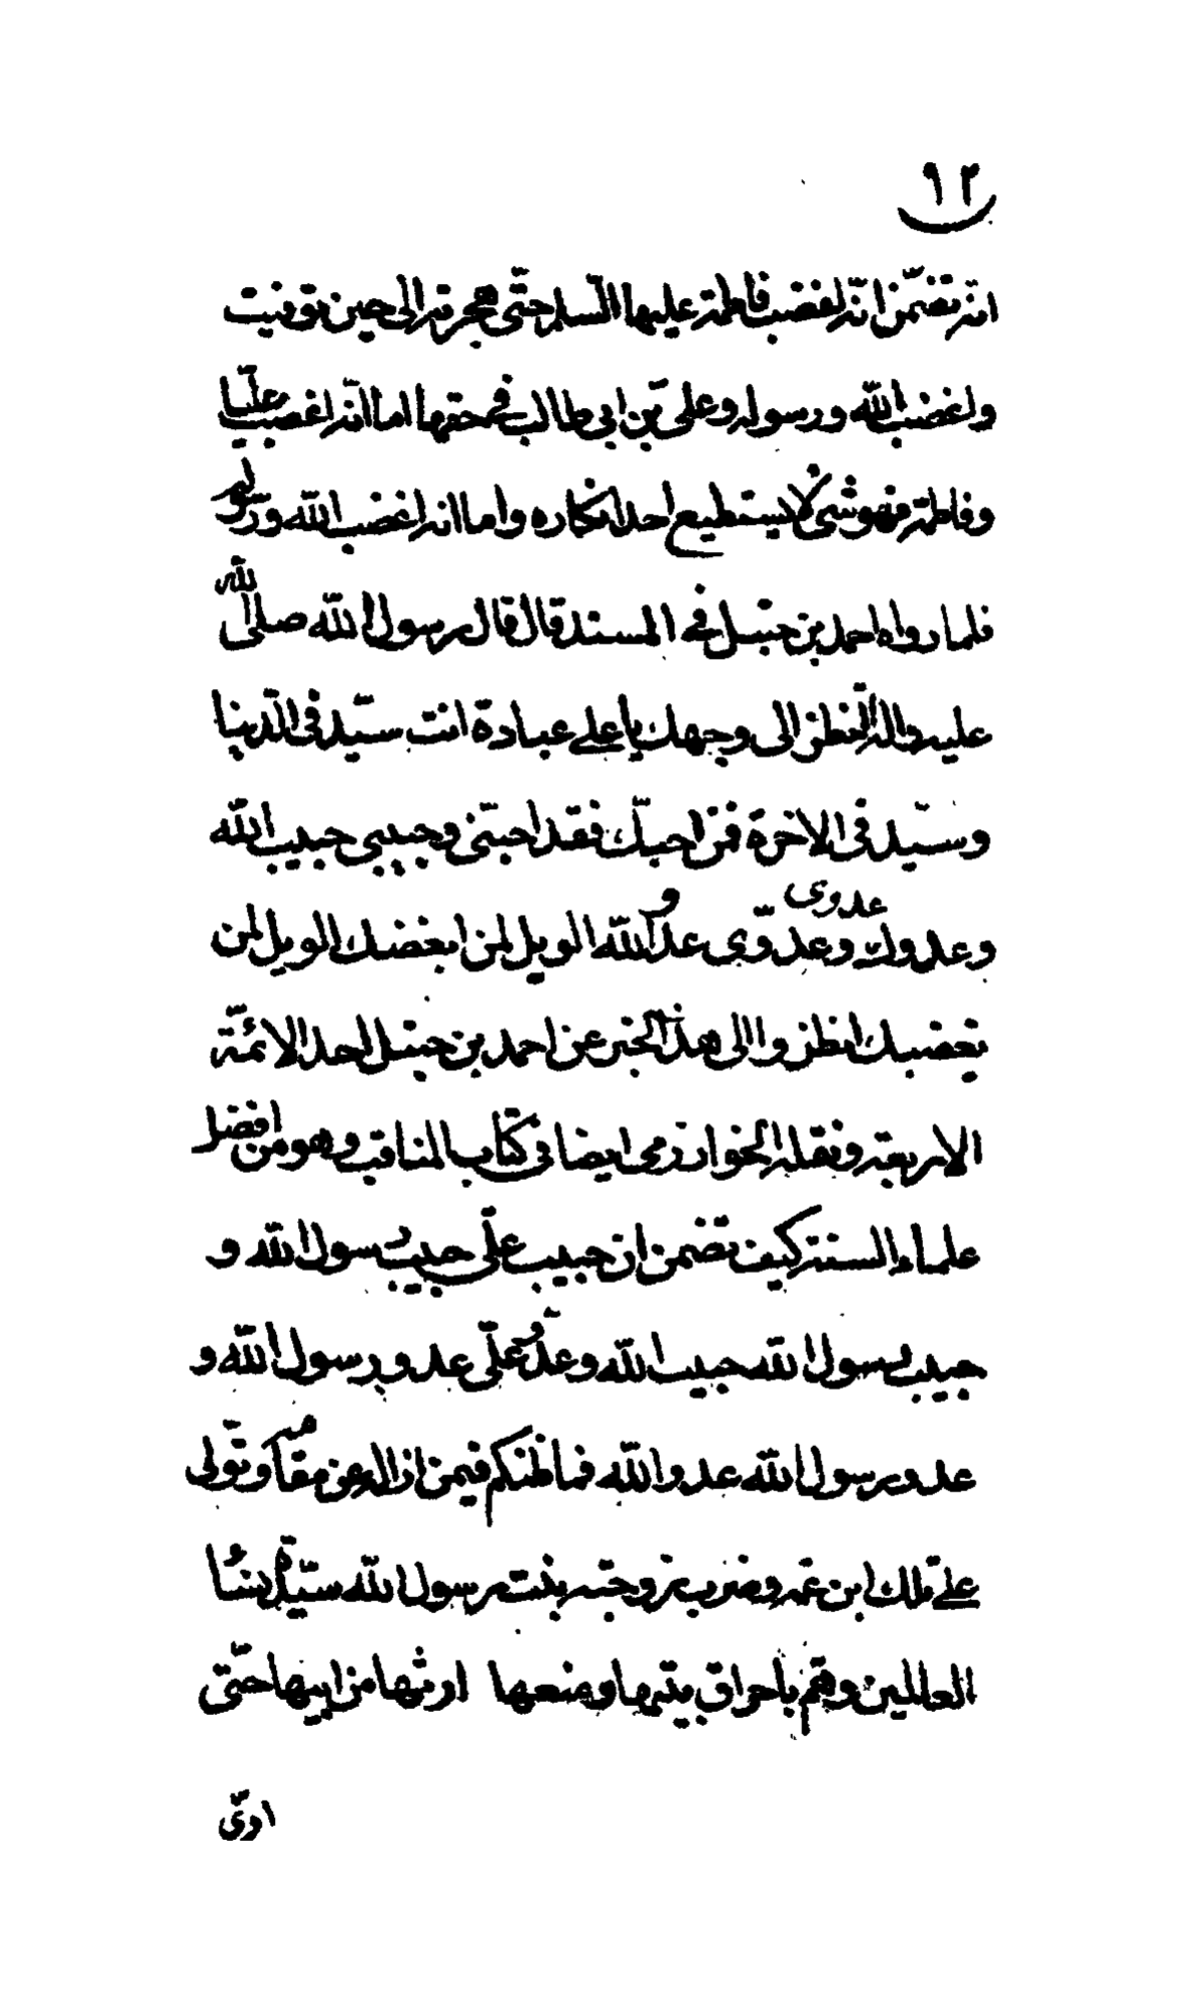 ٩٢
انه تضمن انه اغضب فاطمة عليها السلام حتى هجرته الى حين توفيت
واغضب الله ورسوله وعلى بن ابى طالب فى حقها اما انه اغضب عليّا
وفاطمة فهو شئ لا يستطيع احد انكاره واما انه اغضب الله ورسوله
فلما رواه احمد بن حنبل فى المسند قال قال رسول الله صلى الله
عليه واله النظر الى وجهك يا على عبادة انت سيّد فى الدنيا
وسيّد فى الاخرة فمن احبّك فقد احبّنى وحبيبى حبيب الله
وعدوك عدوى وعدوّى عدو الله الويل لمن ابغضك الويل لمن
يغضبك انظروا الى هذا الخبر عن احمد بن حنبل احد الائمّة
الاربعة ونقله الخوارزمى ايضا فى كتاب المناقب وهو من افضل
علماء السنة كيف تضمن ان حبيب علىّ حبيب رسول الله و
حبيب رسول الله حبيب الله وعدو علىّ عدو رسول الله و
عدو رسول الله عدو الله فما ظنكم فيمن ازاله عن مقامه وتولى
على ملك ابن عمه وضرب زوجته بنت رسول الله سيّدة نساء
العالمين وهمّ باحراق بيتها ومنعها ارثها من ابيها حتّى
ادى